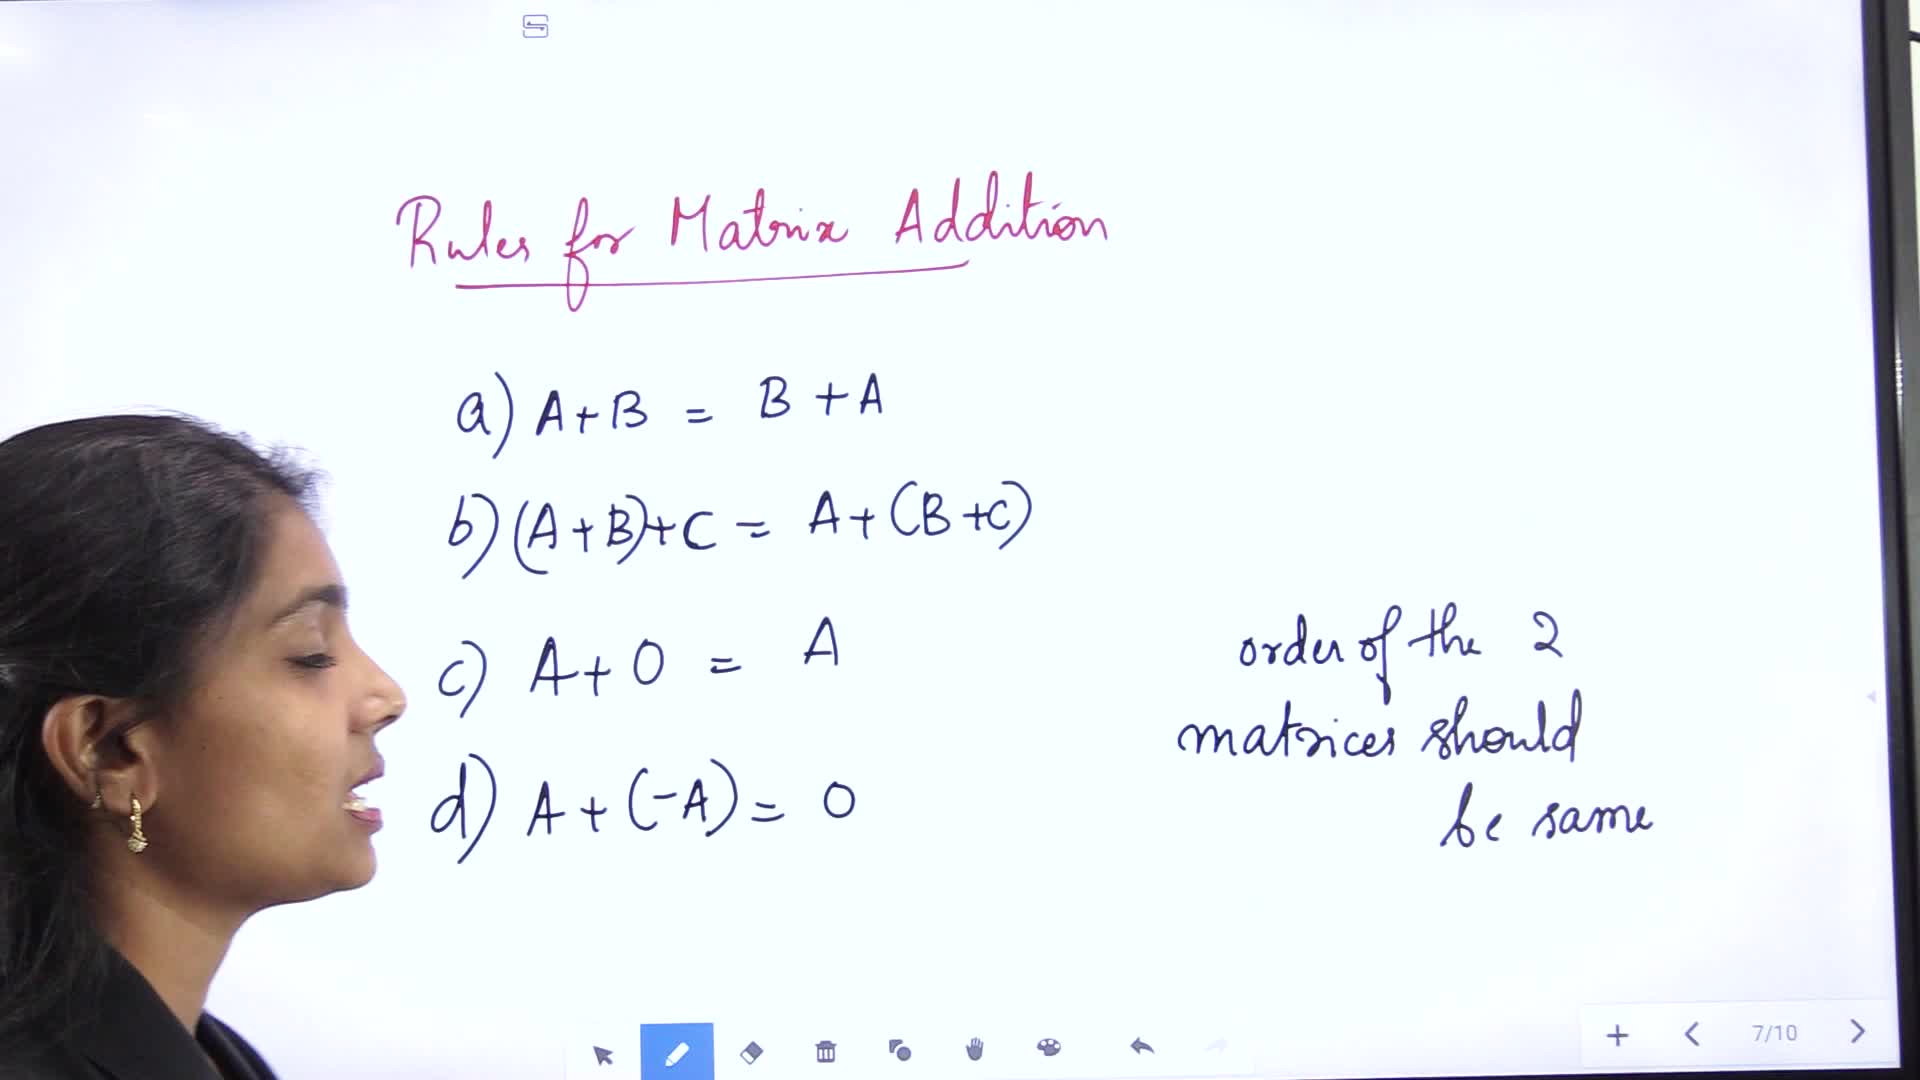 Rules for Matrix Addition
a) A+B = B+A
b) (A+B)+C = A+(B+C)
c) A+0 = A
d) A+(-A) = 0
order of the 2
matrices should
be same
7/10